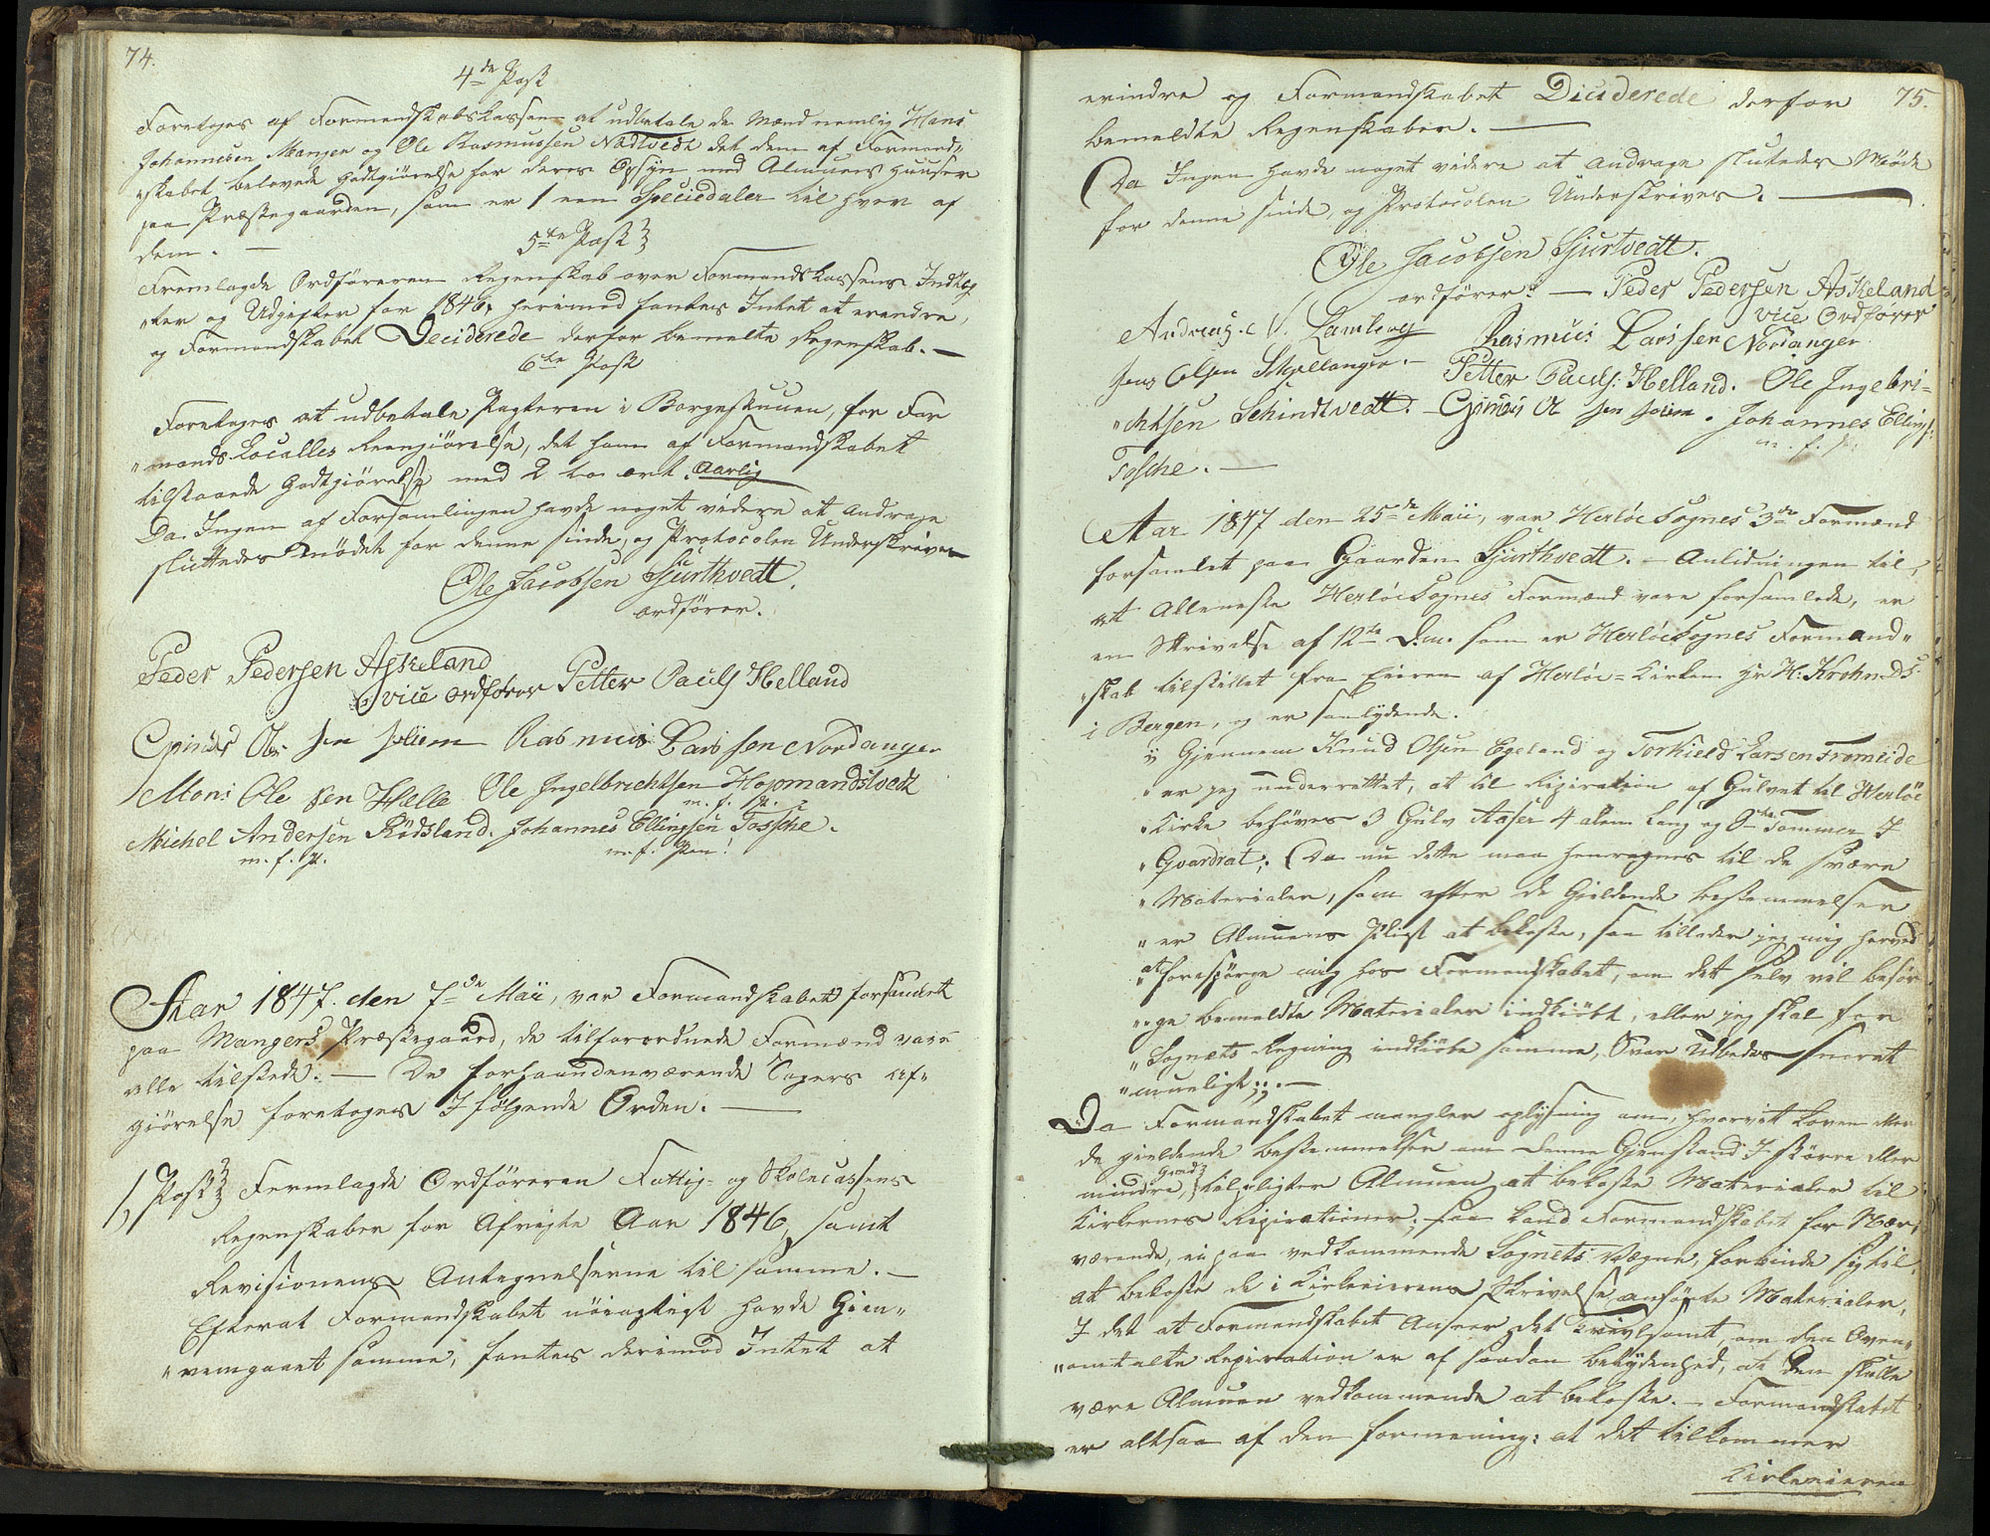 74.
4de Post
Foretoges af Formandskabskassen at udbetale de Mænd nemlig Hans
Johannesen Manger og Ole Rasmussen Nødtvedt det dem af Formand-
"skabet belovede Godtgjørelse for deres Opsyn med Almuens Huuser
paa Præstegaarden, som er 1 een Speciedaler til hver af
dem. —
5te Post
Fremlagde Ordføreren Regenskab over Formandskassens Indtæg
"ter og Udgifter for 1846, herimod fantes Intet at erendre,
og Formandskabet Deciderede derfor bemelte Regenskab. —
6te Post
Foretoges at udbetale Pagteren i Borgestuuen, for For
"mands Localles Reengjørelse, det ham af Formandskabet
tilstaaede Godtgjørelse med 2 to ort. Aarlig
Da Ingen af Forsamlingen havde noget videre at Andrage
sluttedes Mødet for denne sinde, og Protocolen Underskrives
Ole Jacobsen Sjurthvedt.
ordfører.
Peder Pedersen Askeland
vice ordfører Petter Pauls Helland
Ole sen Rasmus Larssen Nordanger
Mons Ole sen Hælle Ole Ingelbrichtsen Hopmandstvedt
m. f. p.
Michel Andersen Rødsland. Johannes Ellingsen Tossche.
m. f. p. m. f. Pen!
Aar 1847. den 7de Maii, var Formandskabet forsamlet
paa Mangers Præstegaard, de tilforordnede Formænd vare
alle tilstede. — De forhaandenværende Sagers Af"
gjørelse foretoges I følgende Orden. —
1, Post Fremlagde Ordføreren Fattig- og Skolecassens
Regenskaber for Afvigte Aar 1846, samt
Revisionens Antegnelserne til samme. —
Efterat Formandskabet nøiagtigt havde Gien"
"nemgaaet samme, fantes derimod Intet at
75.
erindre og Formandskabet Deciderede derfor
bemeldte Regenskaber. —
Da Ingen havde noget videre at Andrage slutedes Møde
for denne sinde, og Protocolen Underskrives. —
Ole Jacobsen Sjurtvedt.
ordfører. — Peder Pedersen Askeland
vice Ordfører
Andreas. Lamberg Rasmus Larssen Nordanger
Jens Olsen Skjellanger. — Petter Pauls: Helland. Ole Ingebri=
"chtsen Schindtvedt. — Ole sen. Johannes Ellings:
m. f. p.
Tosche. —
Aar 1847 den 25de Maii, var Herløe Sognes 3de Formænd
forsamlet paa Gaarden Sjurthvedt. — Anlidningen til,
at Alleneste Herløe Sognes Formænd vare forsamlede, er
en Skrivelse af 12te D.m. som er Herløe Sognes Formand"
"skab tilstillet fra Eieren af Herløe-Kirken Hr H: Krohn
i Bergen, og er saalydende.
" Gjennem Knud Olsen Egeland og Torkield Larsen Tromeide
" er jeg underrettet, at til Repiration af Gulvet til Herløe
" Kirke behøves 3 Gulv Aaser 4 alen lang og 8te Tommer I
" Qvardrat; Da nu dette maa henregnes til de svære
" Materialer, som efter de Gjeldende Bestemmelser
" er Almuens Pligt at bekoste, saa tillader jeg mig herved
" at forespørge mig hos Formandskabet, om det selv vil besør
"ge bemeldte Materialer indkiøbt, eller jeg skal for
" Sognets Regning indkiøbe samme, Svar udbedes snarest
" mueligt;;. —
Da Formandskabet mangler oplysning om, hvorvit Loven eller
de gjeldende bestemmelser om denne Gjenstand I større eller
mindre, Grad tilpligter Almuen at bekoste Materialer til
Kirkernes Repirationer, saa kand Formandskabet for Nær,
værende, ei paa vedkommende Sognets Vægne, forbinde sig til,
at bekoste de i Kirkeeierens Skrivelse anførte Materialer,
I det at Formandskabet Anseer det tvivlsomt, om den Oven"
"omtalte Repiration er af saadan betydenhed, at den skulle
være Almuen vedkommende at bekoste. — Formandskabet
er altsaa af den formening: at det tilkommer
Kirkeeieren